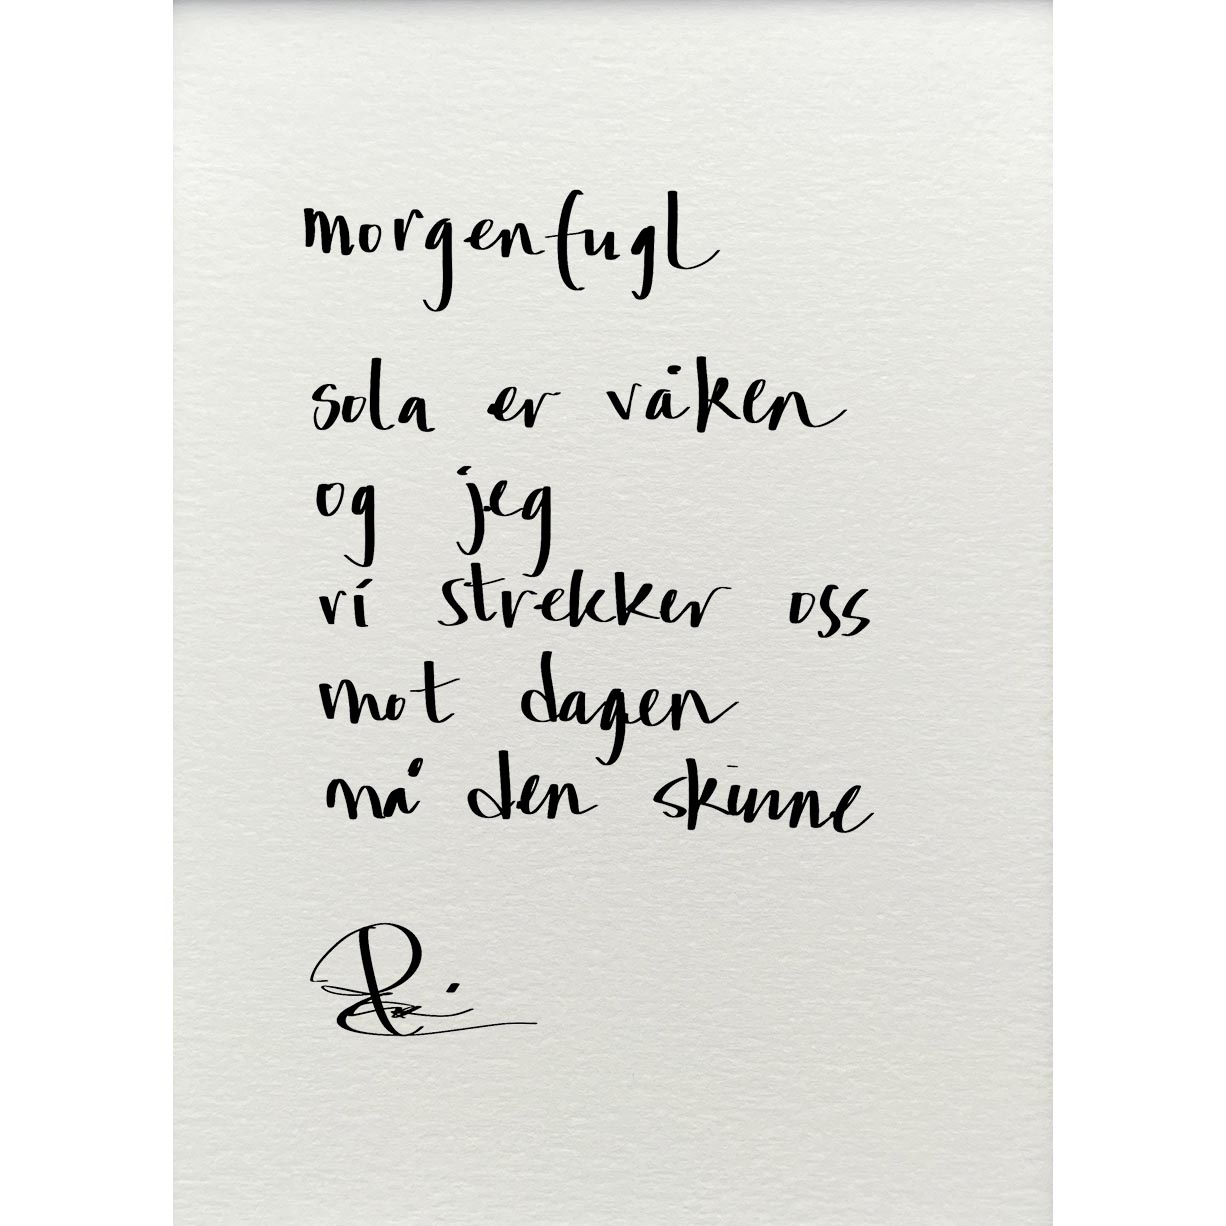 morgenfugl
sola er våken
og jeg
vi strekker oss
mot dagen
nå den skinne